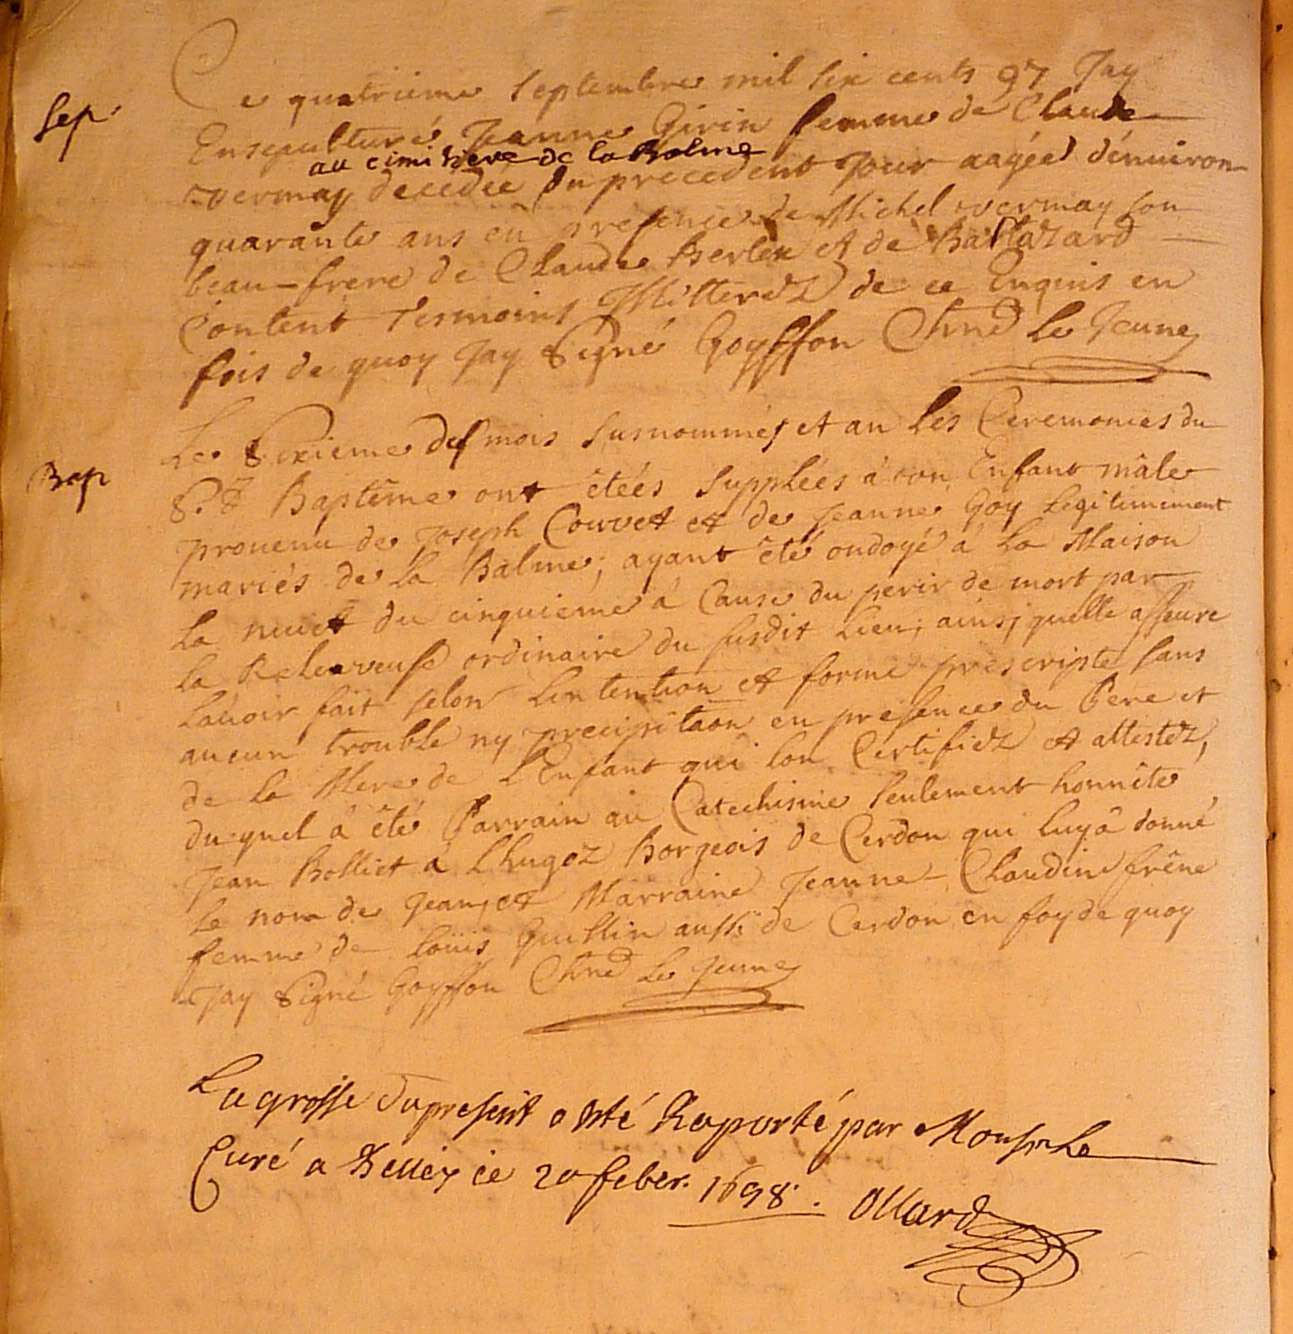 Sep
Ce quatrieme Septembre mil six cents 97 Jay
Ensepulturé Jeanne Girin femme de Claude
au cimitiere de la Balme
vermay decedée du precedent Jour aagée dénuiron
quarante ans en presence de Michel vermay son
beau-frere de Claude Berlie et de Baltazard
Content Tesmoins Illitterez de ce Enquis en
fois de quoy Jay Signé Goyffon Curé Le Jeune
Bap
Le Sixieme des mois susnommés et an les Ceremonies du
St Baptême ont êtées supplées à un Enfant mâle
prouenu de Joseph Couvet et de Jeanne Goy Legitimement
mariés de la Balme; ayant êté ondoyé à la Maison
La nuict du cinquieme à Cause du perir de mort par
la Releveuse ordinaire du susdit Lieu; ainsi quelle asseure
Lauoir fait selon Lintention et forme prescripte sans
aucun trouble ny precipitaon en presence du Pere et
de la Mere de L'Enfant qui lon Certifiez et attestez,
duquel â êté Parrain au Catechisme seulement honnête
Jean Bolliet a Lhugoz Borgeois de Cerdon qui luy â donné
Le nom de Jean, et Marraine Jeanne Claudine frêne
femme de Loüis Guillin aussi de Cerdon en foy de quoy
Jay Signé Goyffon Le Jeune
La grosse du present a esté Raporté par Monsr Le
Curé a Belley ce 20 feber. 1698. Ollard